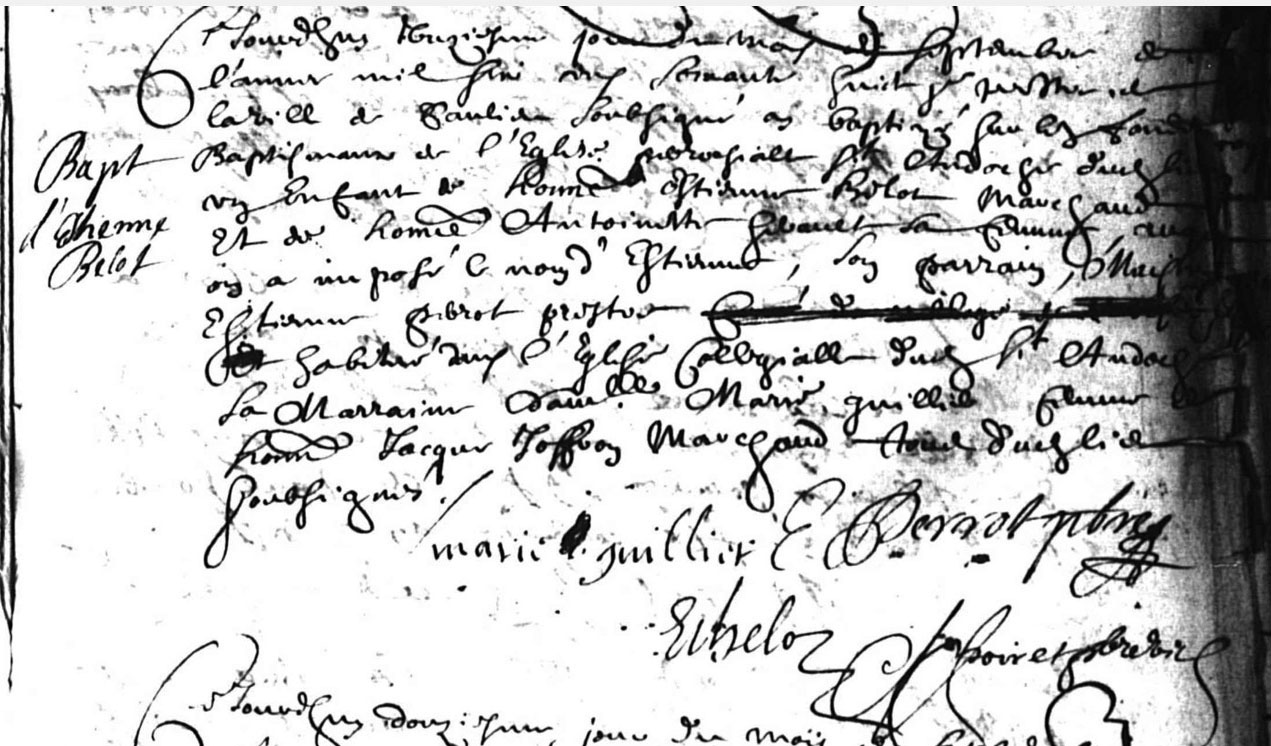 Bapt
d'Etienne
Belot
Jourdhuy unziesme jour du mois de septembre de
l'annee mil six cens soixante huict je prestre de
la ville de Saulieu soubsigné ay baptizé sur les fonds
Baptismaux de l'Eglise parochialle St Andoche dud lieu
un enfant de honne Estienne Belot Marchand
Et de honne Antoinette sa femme auq
on a imposé le nom d'Estienne, son parrain, Maistre
Estienne perot prestre
habitué dans l'Eglise Collegialle dud St Andoche
La Marraine damlle Marie guillier femme de
honne Jacque Joffroy Marchand tous dud lieu
soubsignés.
marie guillier E Perrot pbre
E belot poiret
Jourdhuy douziesme jour du mois